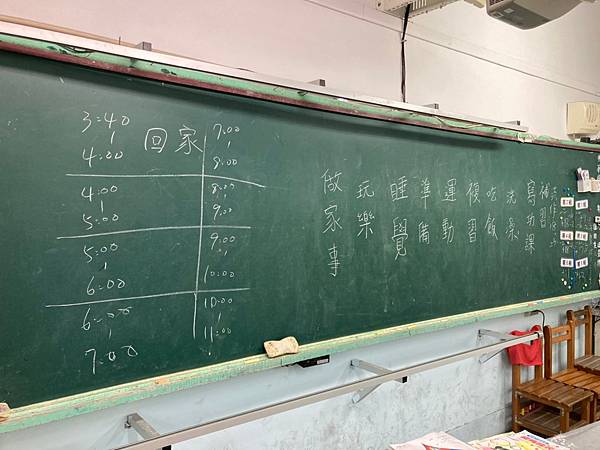 3:40
4:00
回家
4:00
5:00
5:00
6:00
6:00
7:00
7:00
8:00
8:00
9:00
9:00
10:00
10:00
11:00
補習
寫功課
洗澡
吃飯
複習
運動
準備
睡覺
玩樂
做家事